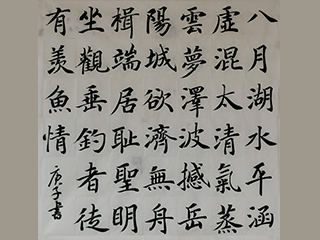 八月湖水平涵
虛混太清氣蒸
雲夢澤波撼岳
陽城欲濟無舟
楫端居耻聖明
坐觀垂釣者徒
有羨魚情
庚子書